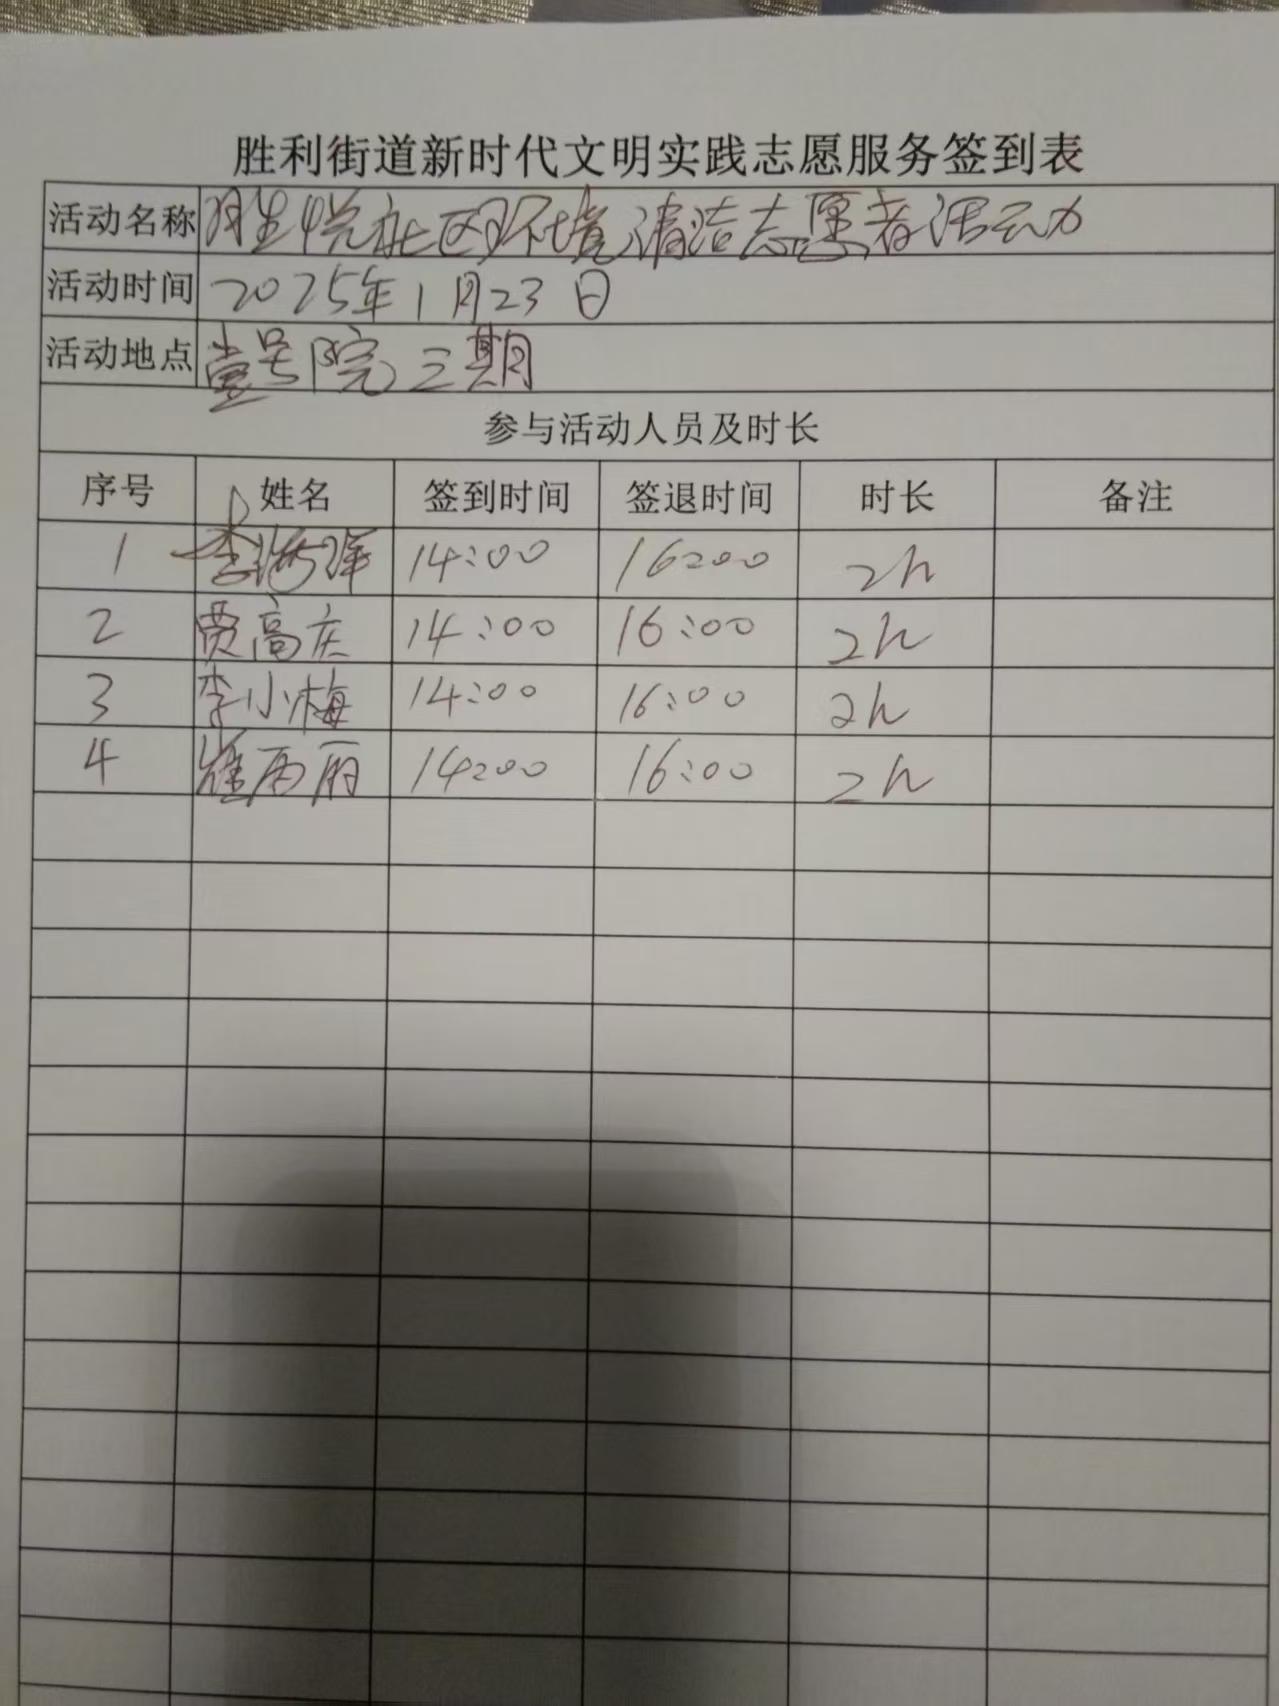 胜利街道新时代文明实践志愿服务签到表
活动名称 胜悦社区环境清洁志愿者活动
活动时间 2025年1月23日
活动地点 壹号院三期
参与活动人员及时长
序号 姓名 签到时间 签退时间 时长 备注
1 李海洋 14:00 16:00 2h
2 贾高庆 14:00 16:00 2h
3 李小梅 14:00 16:00 2h
4 丽 14:00 16:00 2h